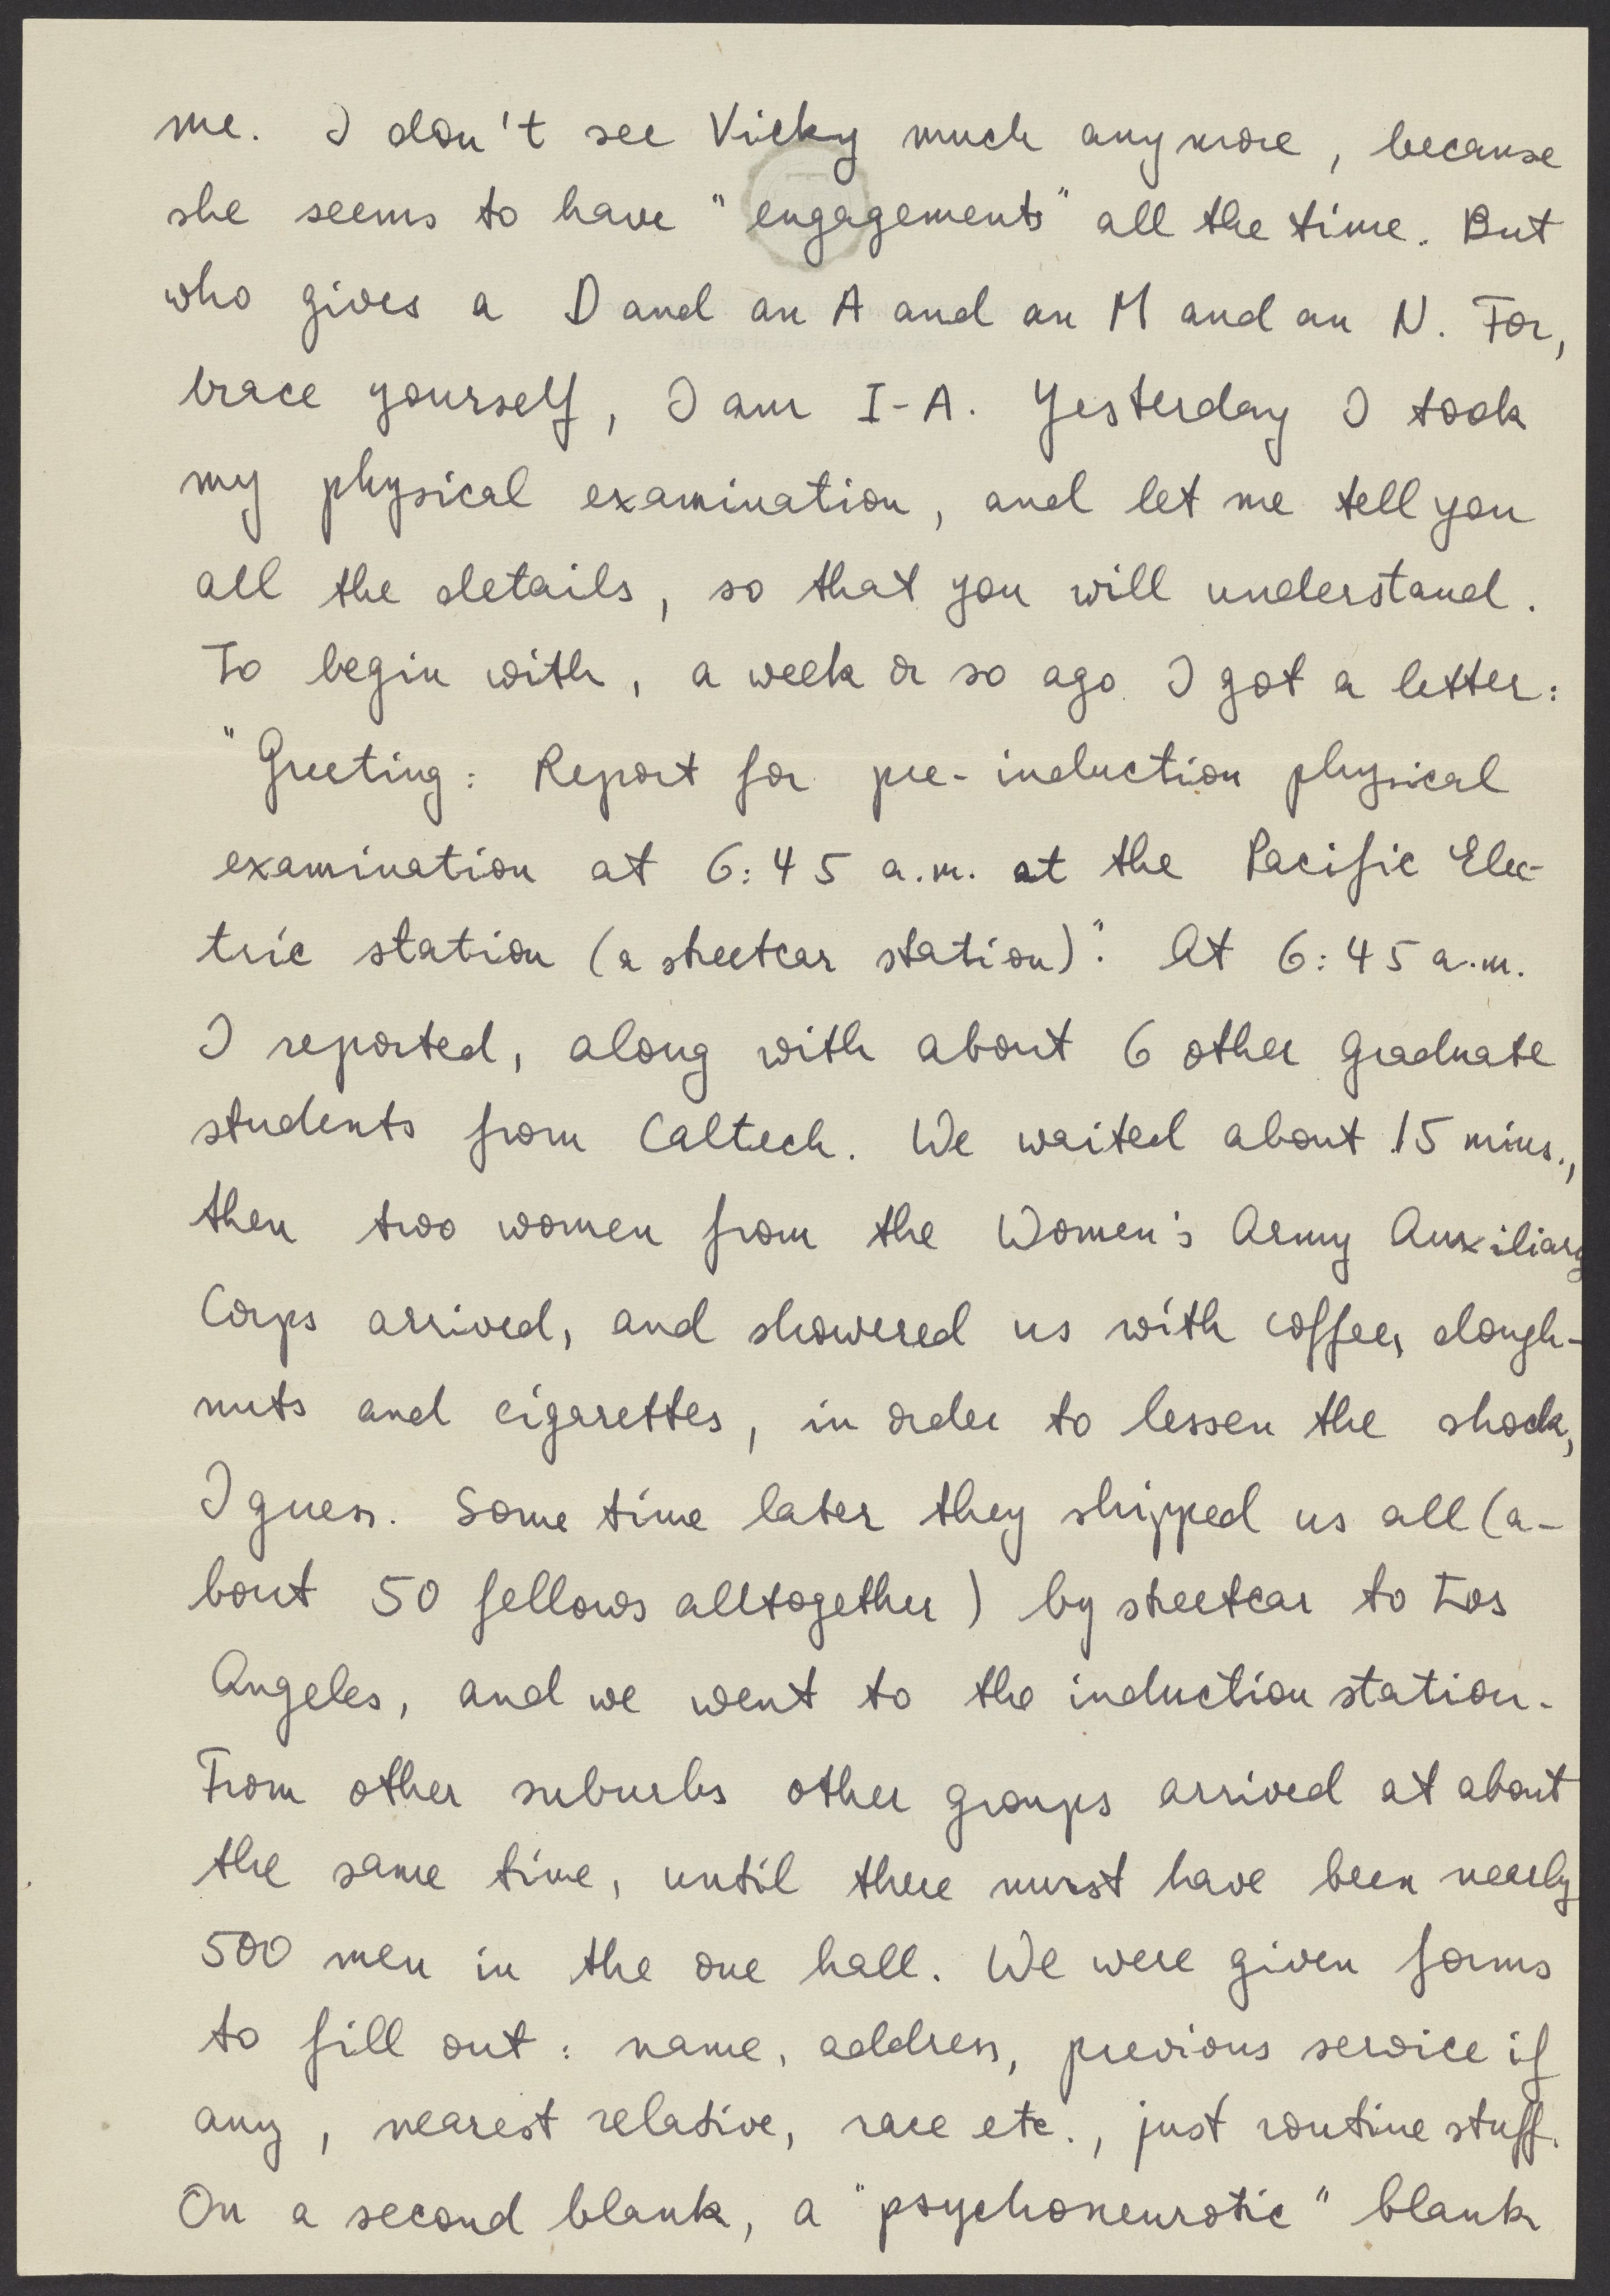 me. I don't see Vicky much anymore, because
she seems to have "engagements" all the time. But
who gives a D and an A and an M and an N. For,
brace yourself, I am I-A. Yesterday I took
my physical examination, and let me tell you
all the details, so that you will understand.
To begin with, a week or so ago I got a letter:
"Greeting: Report for pre-induction physical
examination at 6:45 a.m. at the Pacific Elec-
tric station (a streetcar station)". At 6:45 a.m.
I reported, along with about 6 other graduate
students from Caltech. We waited about 15 mins.,
then two women from the Women's Army Auxiliary
Corps arrived, and showered us with coffee, dough-
nuts and cigarettes, in order to lessen the shock,
I guess. Some time later they shipped us all (a-
bout 50 fellows alltogether) by streetcar to Los
Angeles, and we went to the induction station.
From other suburbs other groups arrived at about
the same time, until there must have been nearly
500 men in the one hall. We were given forms
to fill out: name, address, previous service if
any, nearest relative, race etc., just routine stuff.
On a second blank, a "psychoneurotic" blank